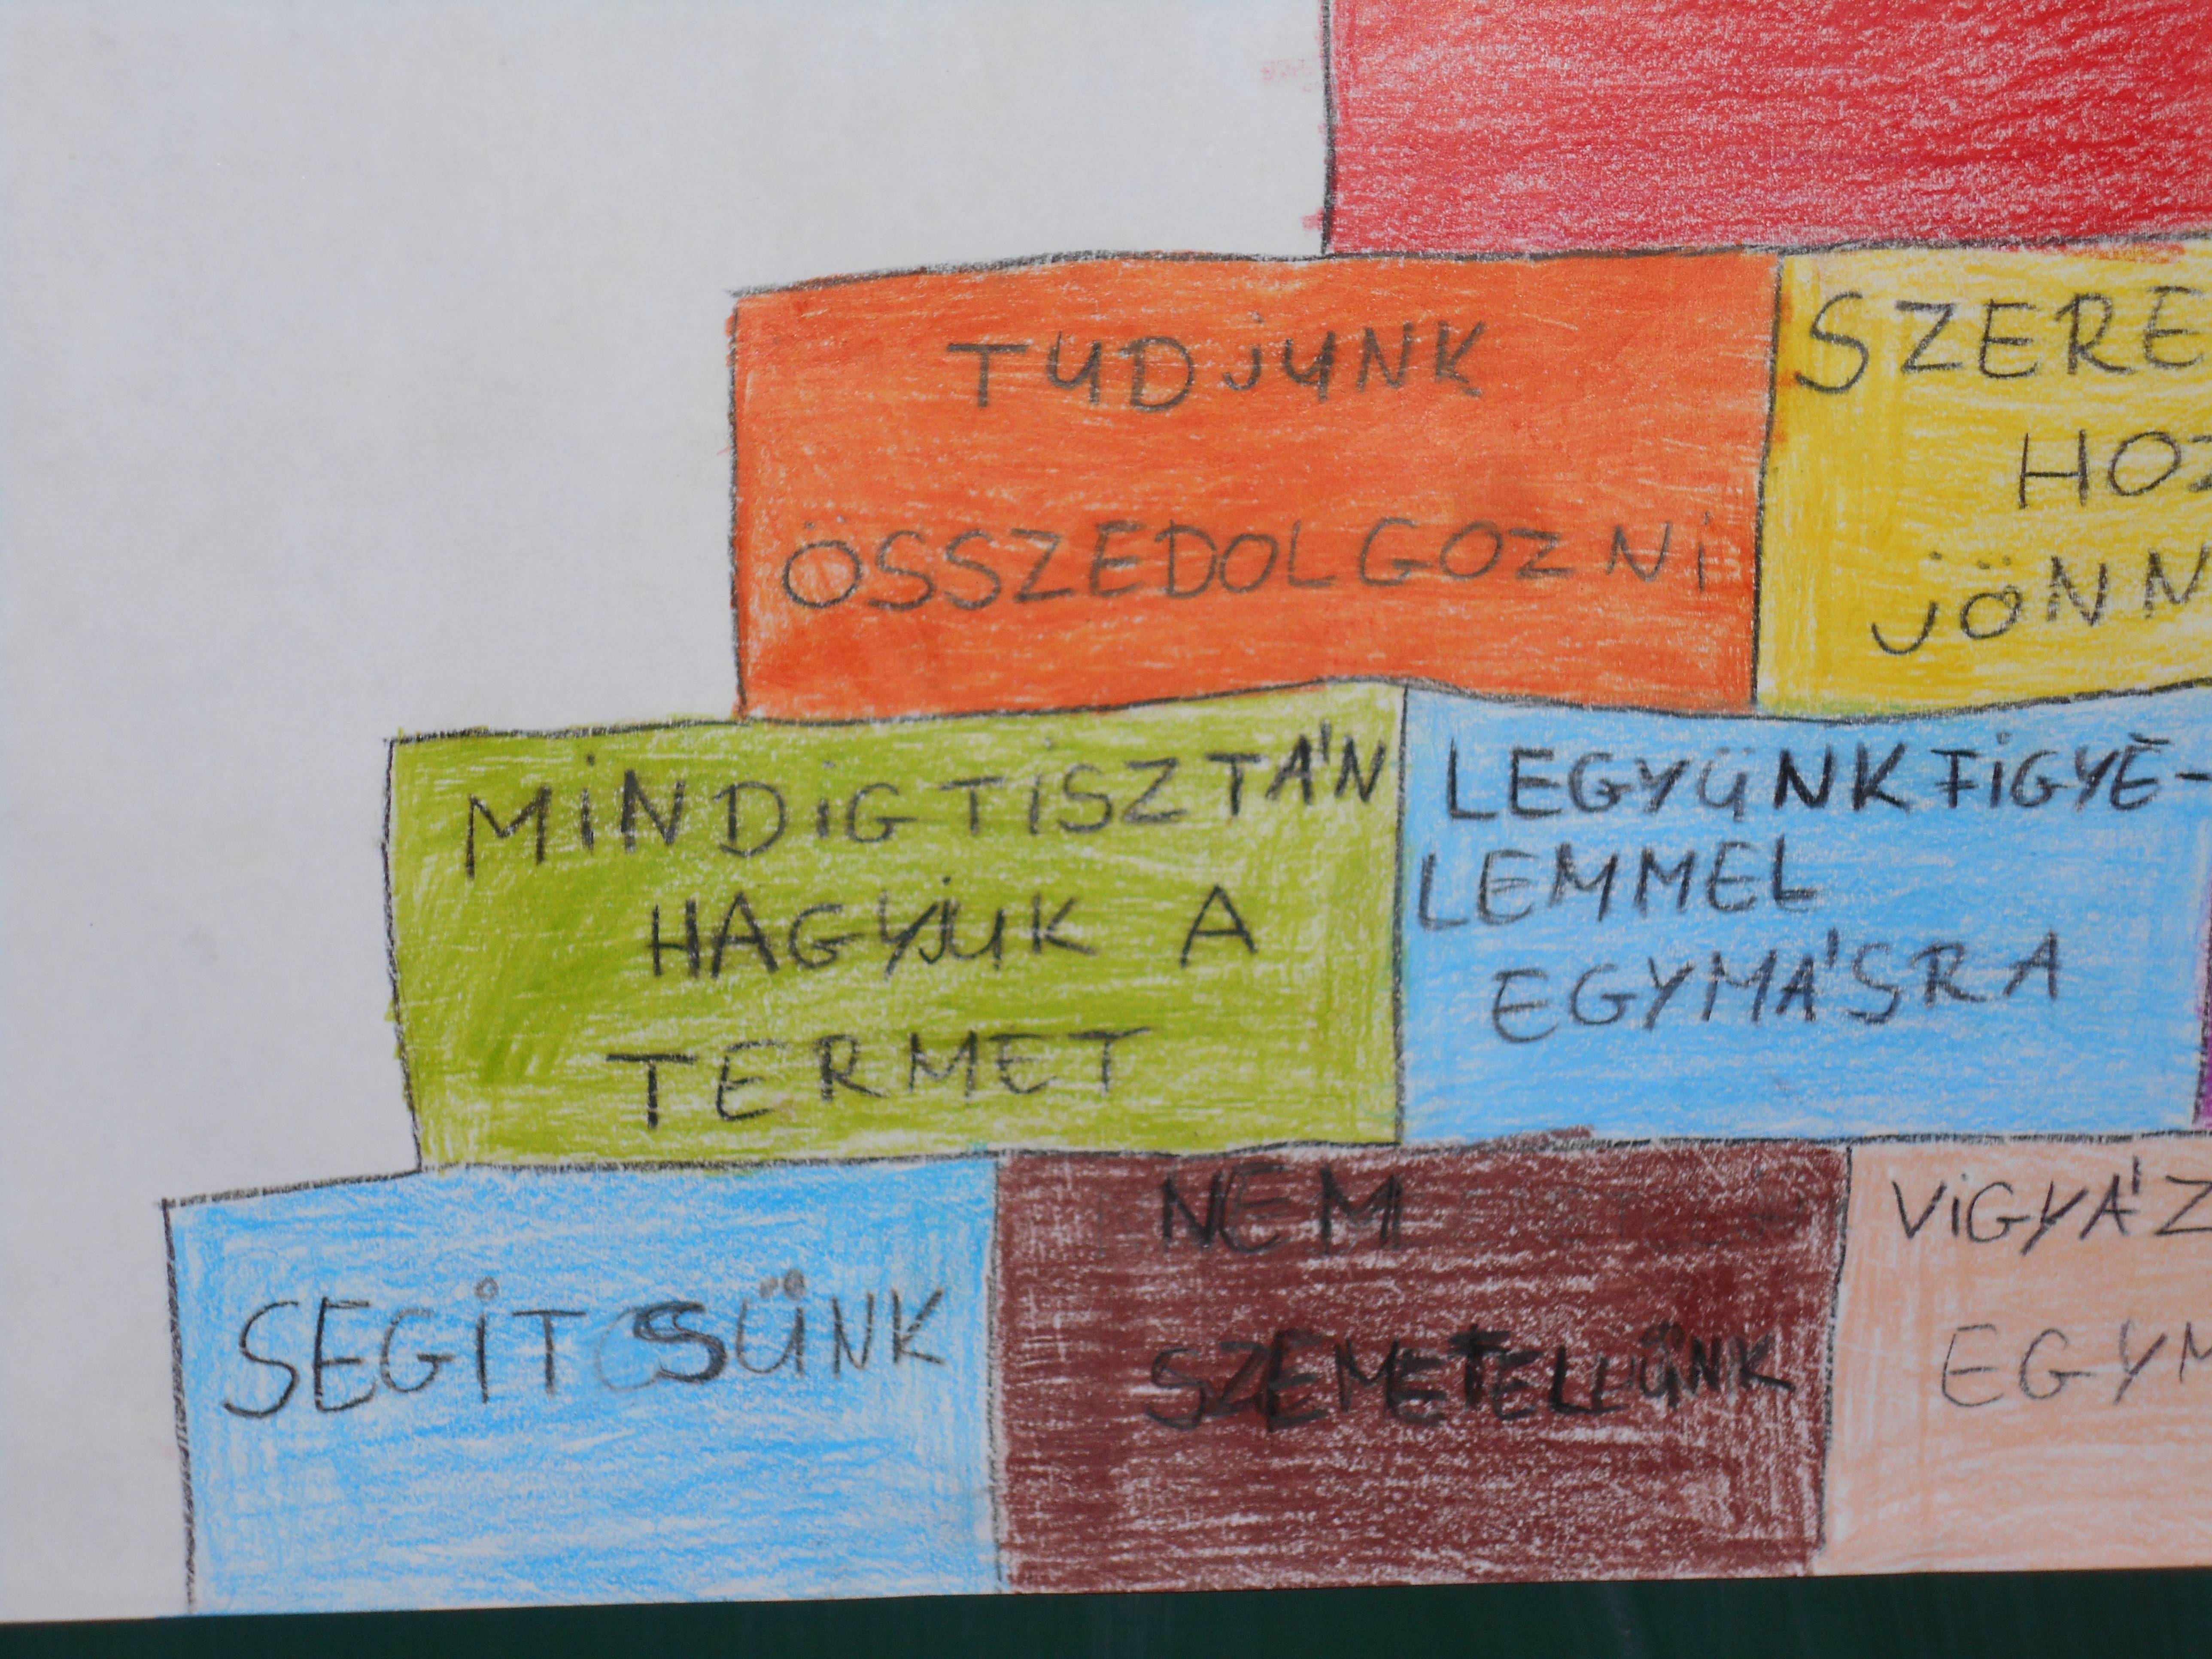 TUDJUNK
ÖSSZEDOLGOZNI
SZERE
HOZ
JÖNN
MINDIG TISZTÁN
HAGYJUK A
TERMET
LEGYÜNK FIGYE-
LEMMEL
EGYMÁSRA
SEGITSÜNK
NEM
SZEMETELLÜNK
VIGYÁZ
EGYM